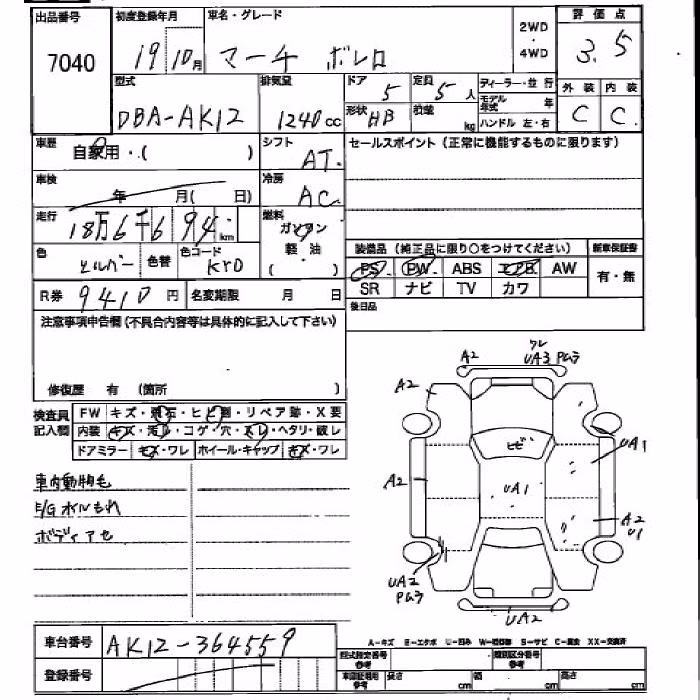 出品番号 初度登録年月 車名・グレード 2WD・4WD 評価点
7040 19 10月 マーチ ボレロ 3.5
型式 排気量 ドア 定員 ディーラー・並行 外装 内装
DBA-AK12 1240cc 5 5人 モデル年式 年 C C
形状 HB 積載 kg ハンドル 左・右
車歴 自家用・( ) シフト AT. セールスポイント (正常に機能するものに限ります)
車検 年 月( 日) 冷房 AC
走行 18万6千6 94 km 燃料 ガソリン
色 シルバー 色替 色コード KY0 軽油 ( )
装備品 (純正品に限り○をつけてください) 新車保証書
PS PW ABS エアB AW 有・無
SR ナビ TV カワ
R券 9410円 名変期限 月 日 後日品
注意事項申告欄 (不具合内容等は具体的に記入して下さい)
修復歴 有 (箇所 )
検査員記入欄 FW キズ・飛石・ヒビ割・リペア跡・X要
内装 キズ・汚れ・コゲ・穴・スレ・ヘタリ・破レ
ドアミラー キズ・ワレ ホイール・キャップ キズ・ワレ
車内動物毛
E/Gオイルもれ
ボディアセ
A2 ワレ
UA3 PG3
A2
ヒビ
UA1
A2 UA1
A2
U1
UA2
PG3
UA2
車台番号 AK12-364559
登録番号
A-キズ E-エクボ U-凹み S-サビ C-腐食 XX-交換済
型式指定番号 参考 類別区分番号 参考
長さ cm 幅 cm 高さ cm